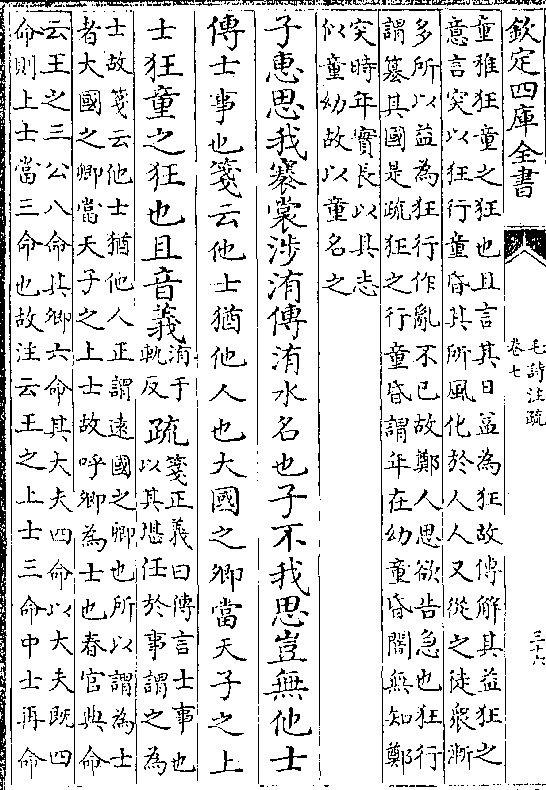 欽定四庫全書
毛詩注疏
卷七
三十六
童稚狂童之狂也且言其日益為狂故傳解其益狂之
意言突以狂行童昏其所風化於人人又從之徒衆漸
多所以益為狂行作亂不已故鄭人思欲告急也狂行
謂簒其國是疏狂之行童昏謂年在幼童昏闇無知鄭
突時年實長以其志
似童幼故以童名之
子恵思我褰裳涉洧傳洧水名也子不我思豈無他士
傳士事也箋云他士猶他人也大國之卿當天子之上
士狂童之狂也且音義
洧于
軌反
疏
箋正義曰傳言士事也
以其堪任於事謂之為
士故箋云他士猶他人正謂逺國之卿也所以謂為士
者大國之卿當天子之上士故呼卿為士也春官典命
云王之三公八命其卿六命其大夫四命以大夫既四
命則上士當三命也故注云王之上士三命中士再命